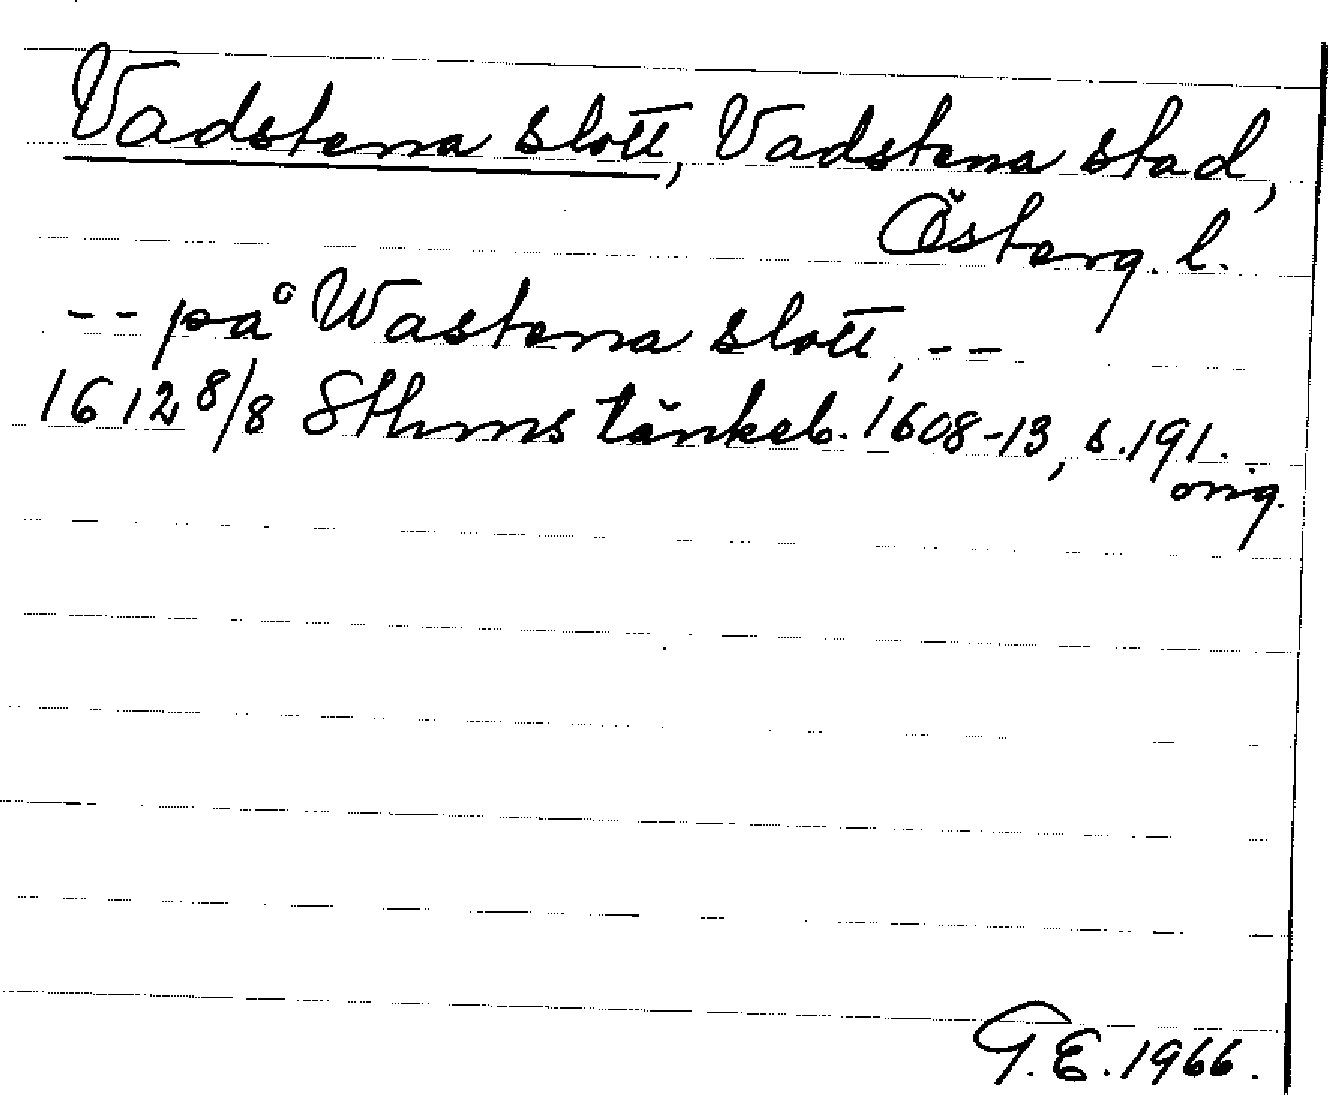 Vadstena slott, Vadstena stad,
Österg. l.
-- på Wastena slott, --
1612 8/8 Sthms tänkeb. 1608-13, s. 191.
orig.
G. E. 1966.